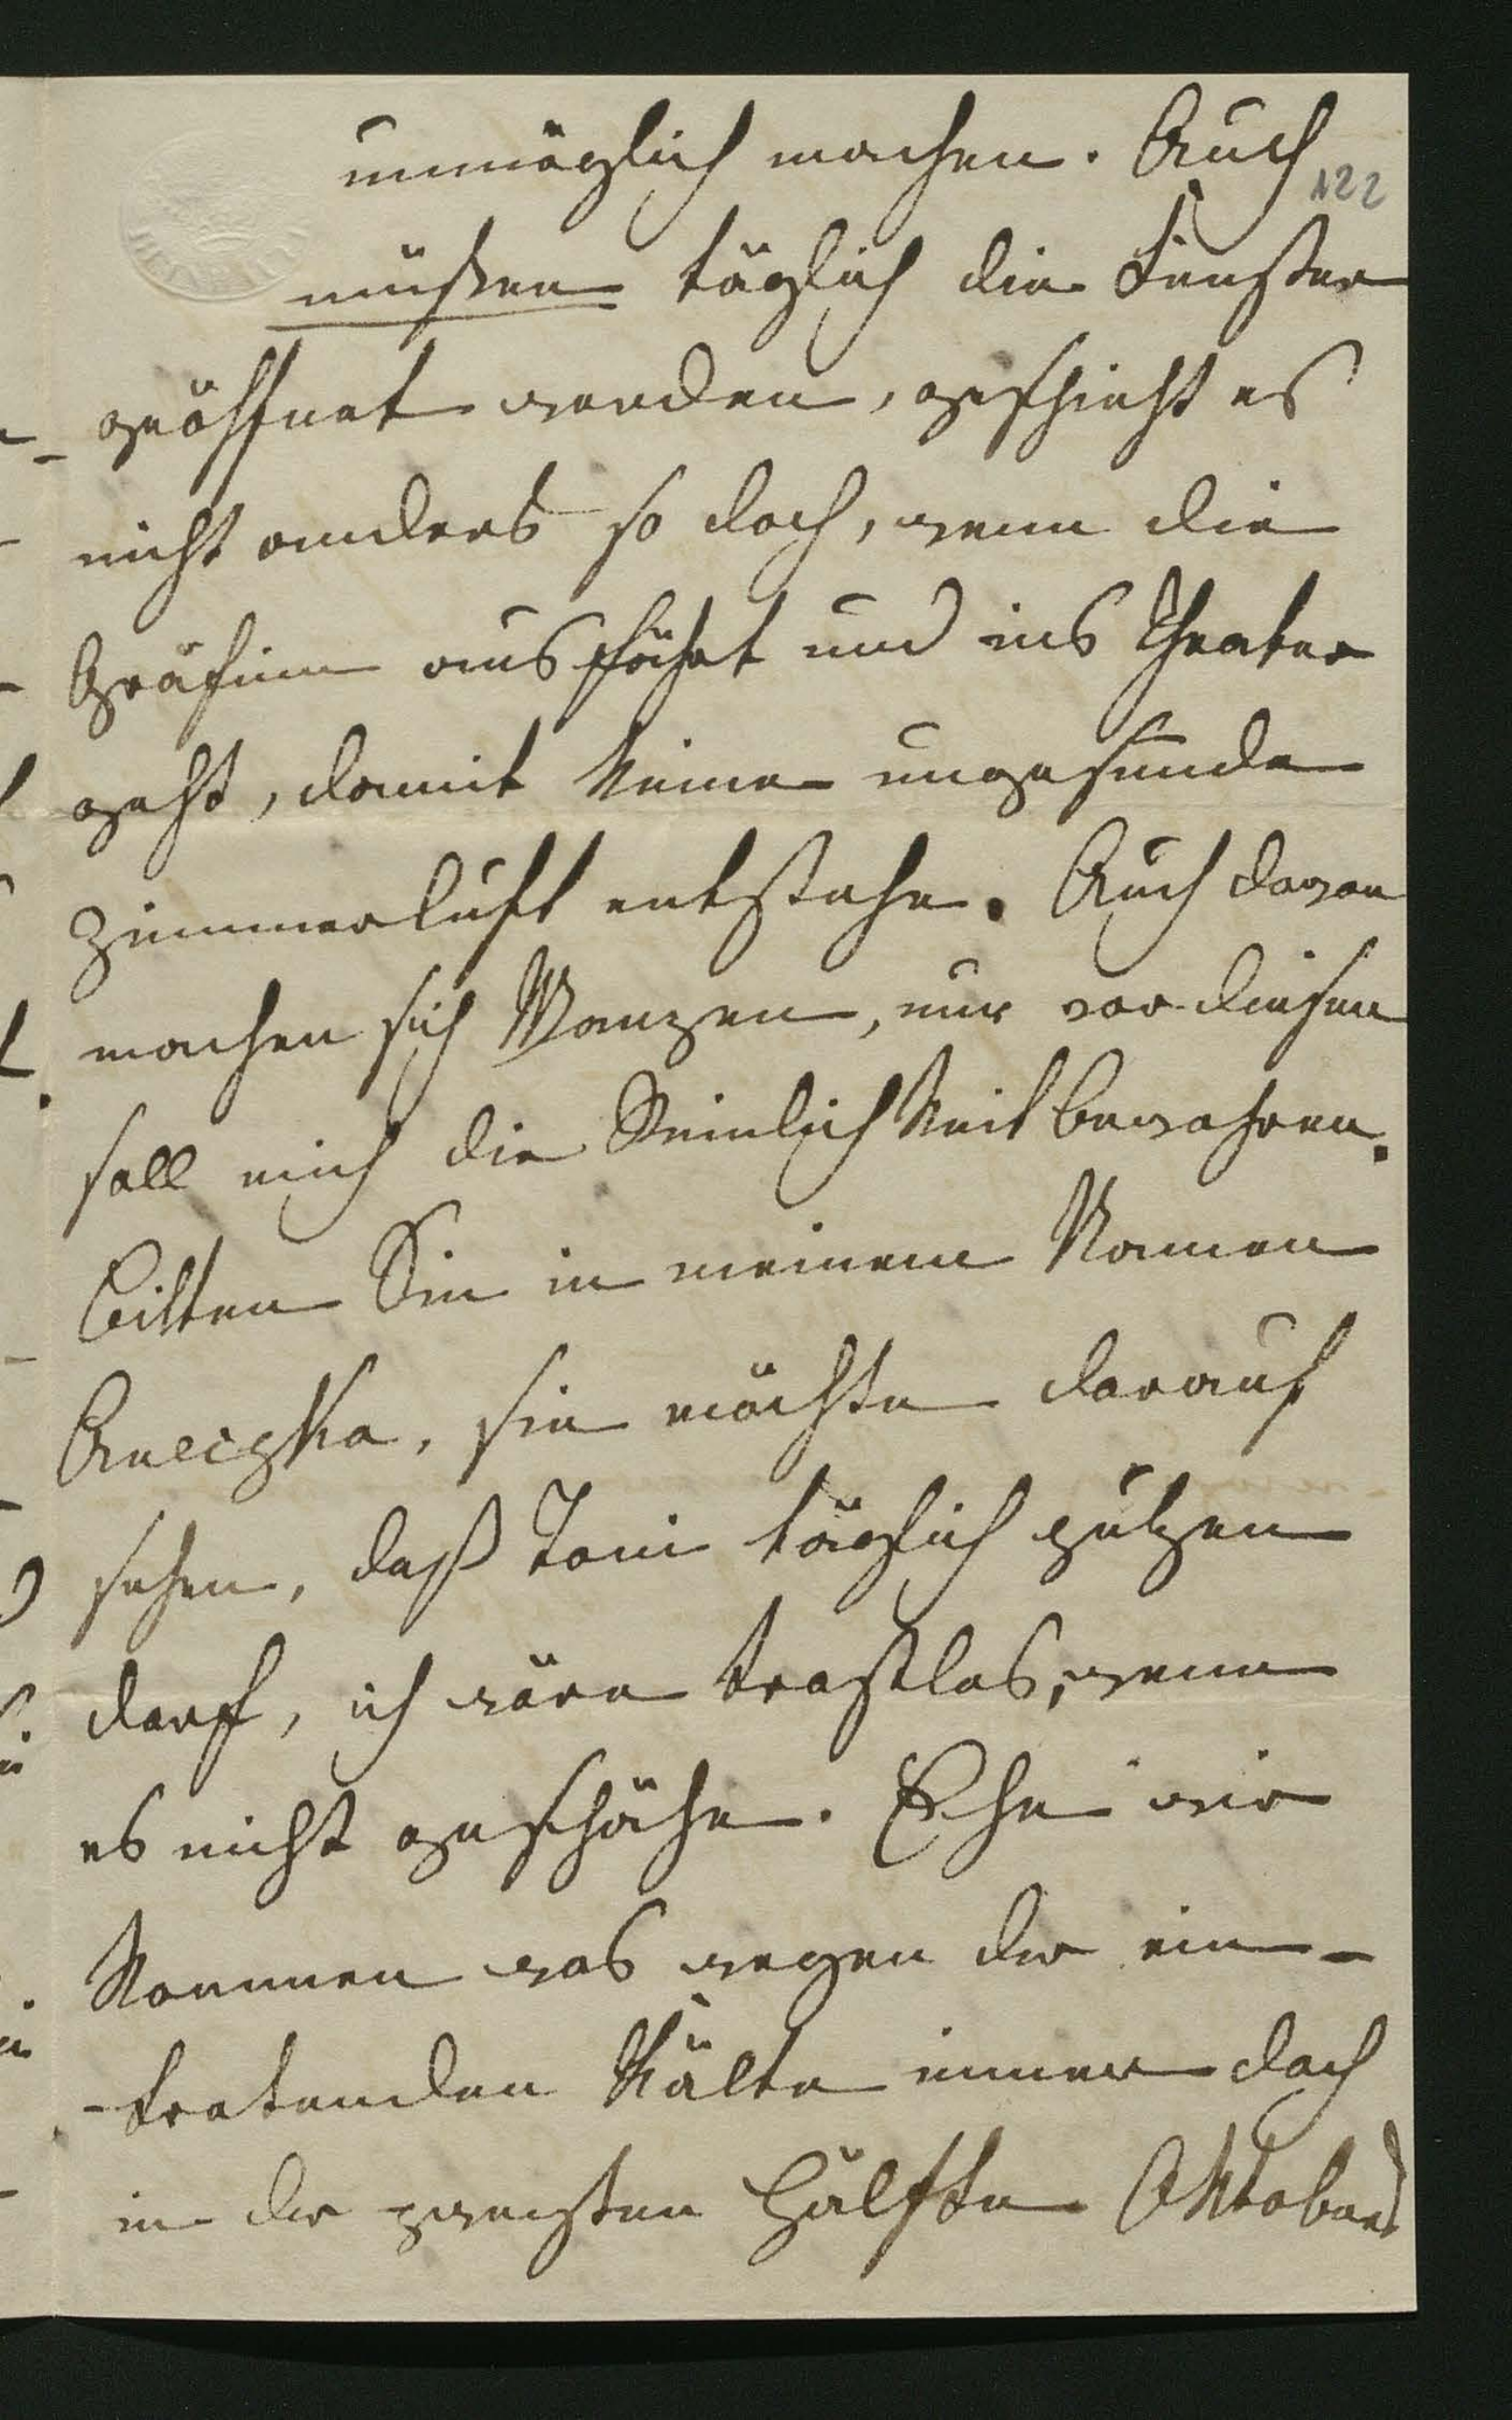 unmöglich machen. Auch
122
müßen täglich die Fenster
geöffnet werden, geschieht es
nicht anders so doch, wenn die
Gräfinn ausfährt und ins Theater
geht, damit keine ungesunde
Zimmerluft entstehe. Auch davon
machen sich Wanzen, nur vor diesen
soll mich die Reinlichkeit bewahren.
Bitten Sie in meinem Namen
Anczka, sie möchte darauf
sehen, daß Toni täglich putzen
darf, ich wäre trostlos, wenn
es nicht geschähe. Ehe wir
kommen was wegen der ein-
-tretenden Kälte immer doch
in der zweiten Hälfte Oktober